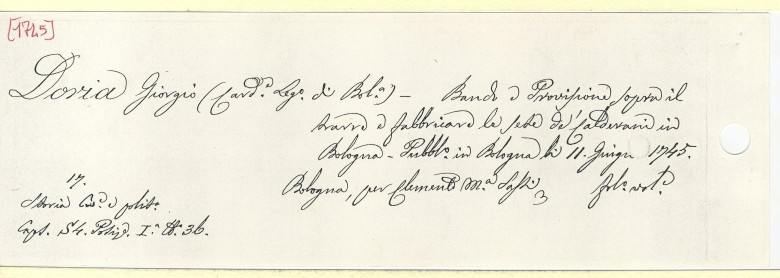 [1745]
Doria Giorgio (Card.e Leg.o di Bol.a) — Bando e Provisione sopra il
trarre e fabbricare le sete de' Calderani in
Bologna - Pubbl.o in Bologna li 11. Giugn 1745.
17. Bologna, per Clemente M.a Sassi fol.o vol.e
Storia e polit.a
Capt. 54. I.o N.o 36.